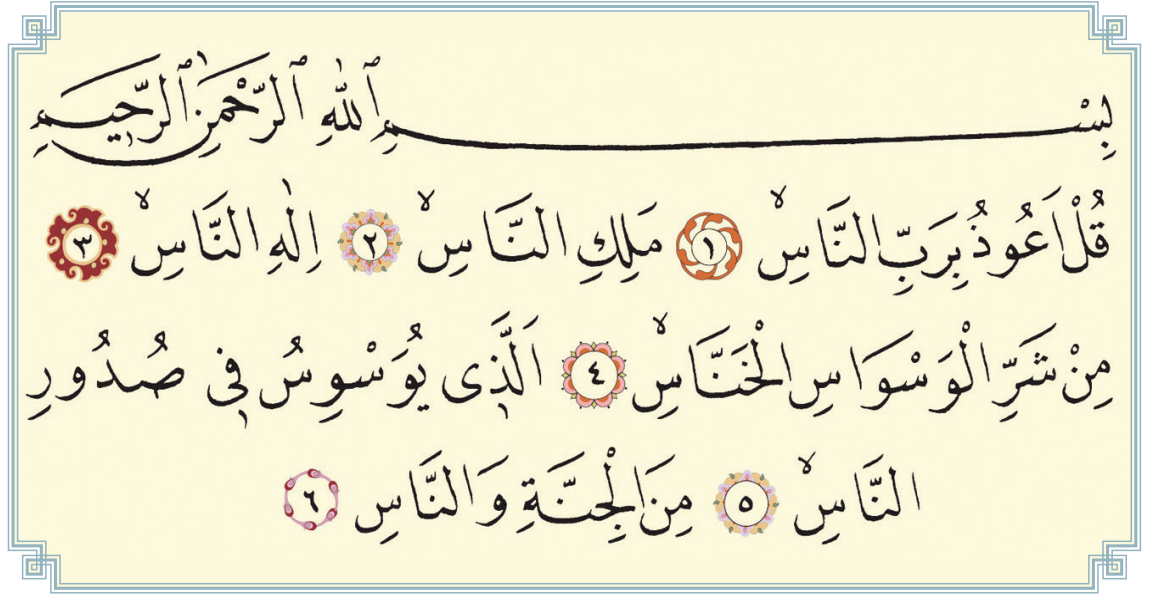 بِسْمِ ٱللّٰهِ ٱلرَّحْمٰنِ ٱلرَّحِيمِ
قُلْ اَعُوذُ بِرَبِّ النَّاسِۙ ١ مَلِكِ النَّاسِۙ ٢ اِلٰهِ النَّاسِۙ ٣
مِنْ شَرِّ الْوَسْوَاسِ الْخَنَّاسِۙ ٤ اَلَّذ۪ى يُوَسْوِسُ ف۪ى صُدُورِ
النَّاسِۙ ٥ مِنَ الْجِنَّةِ وَالنَّاسِ ٦